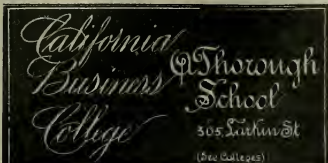 California
Business
College
A Thorough
School
305 Larkin St
(See Colleges)